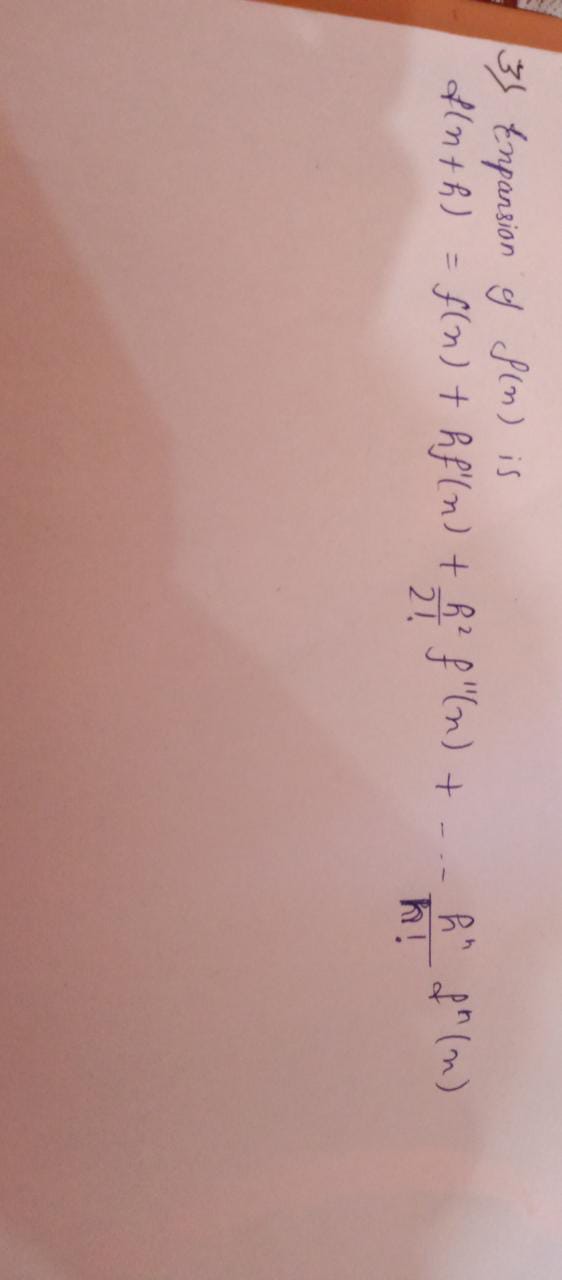 3) Expansion of f(x) is
f(x+h) = f(x) + hf'(x) + h²/2! f''(x) + - - - hⁿ/n! fⁿ(x)